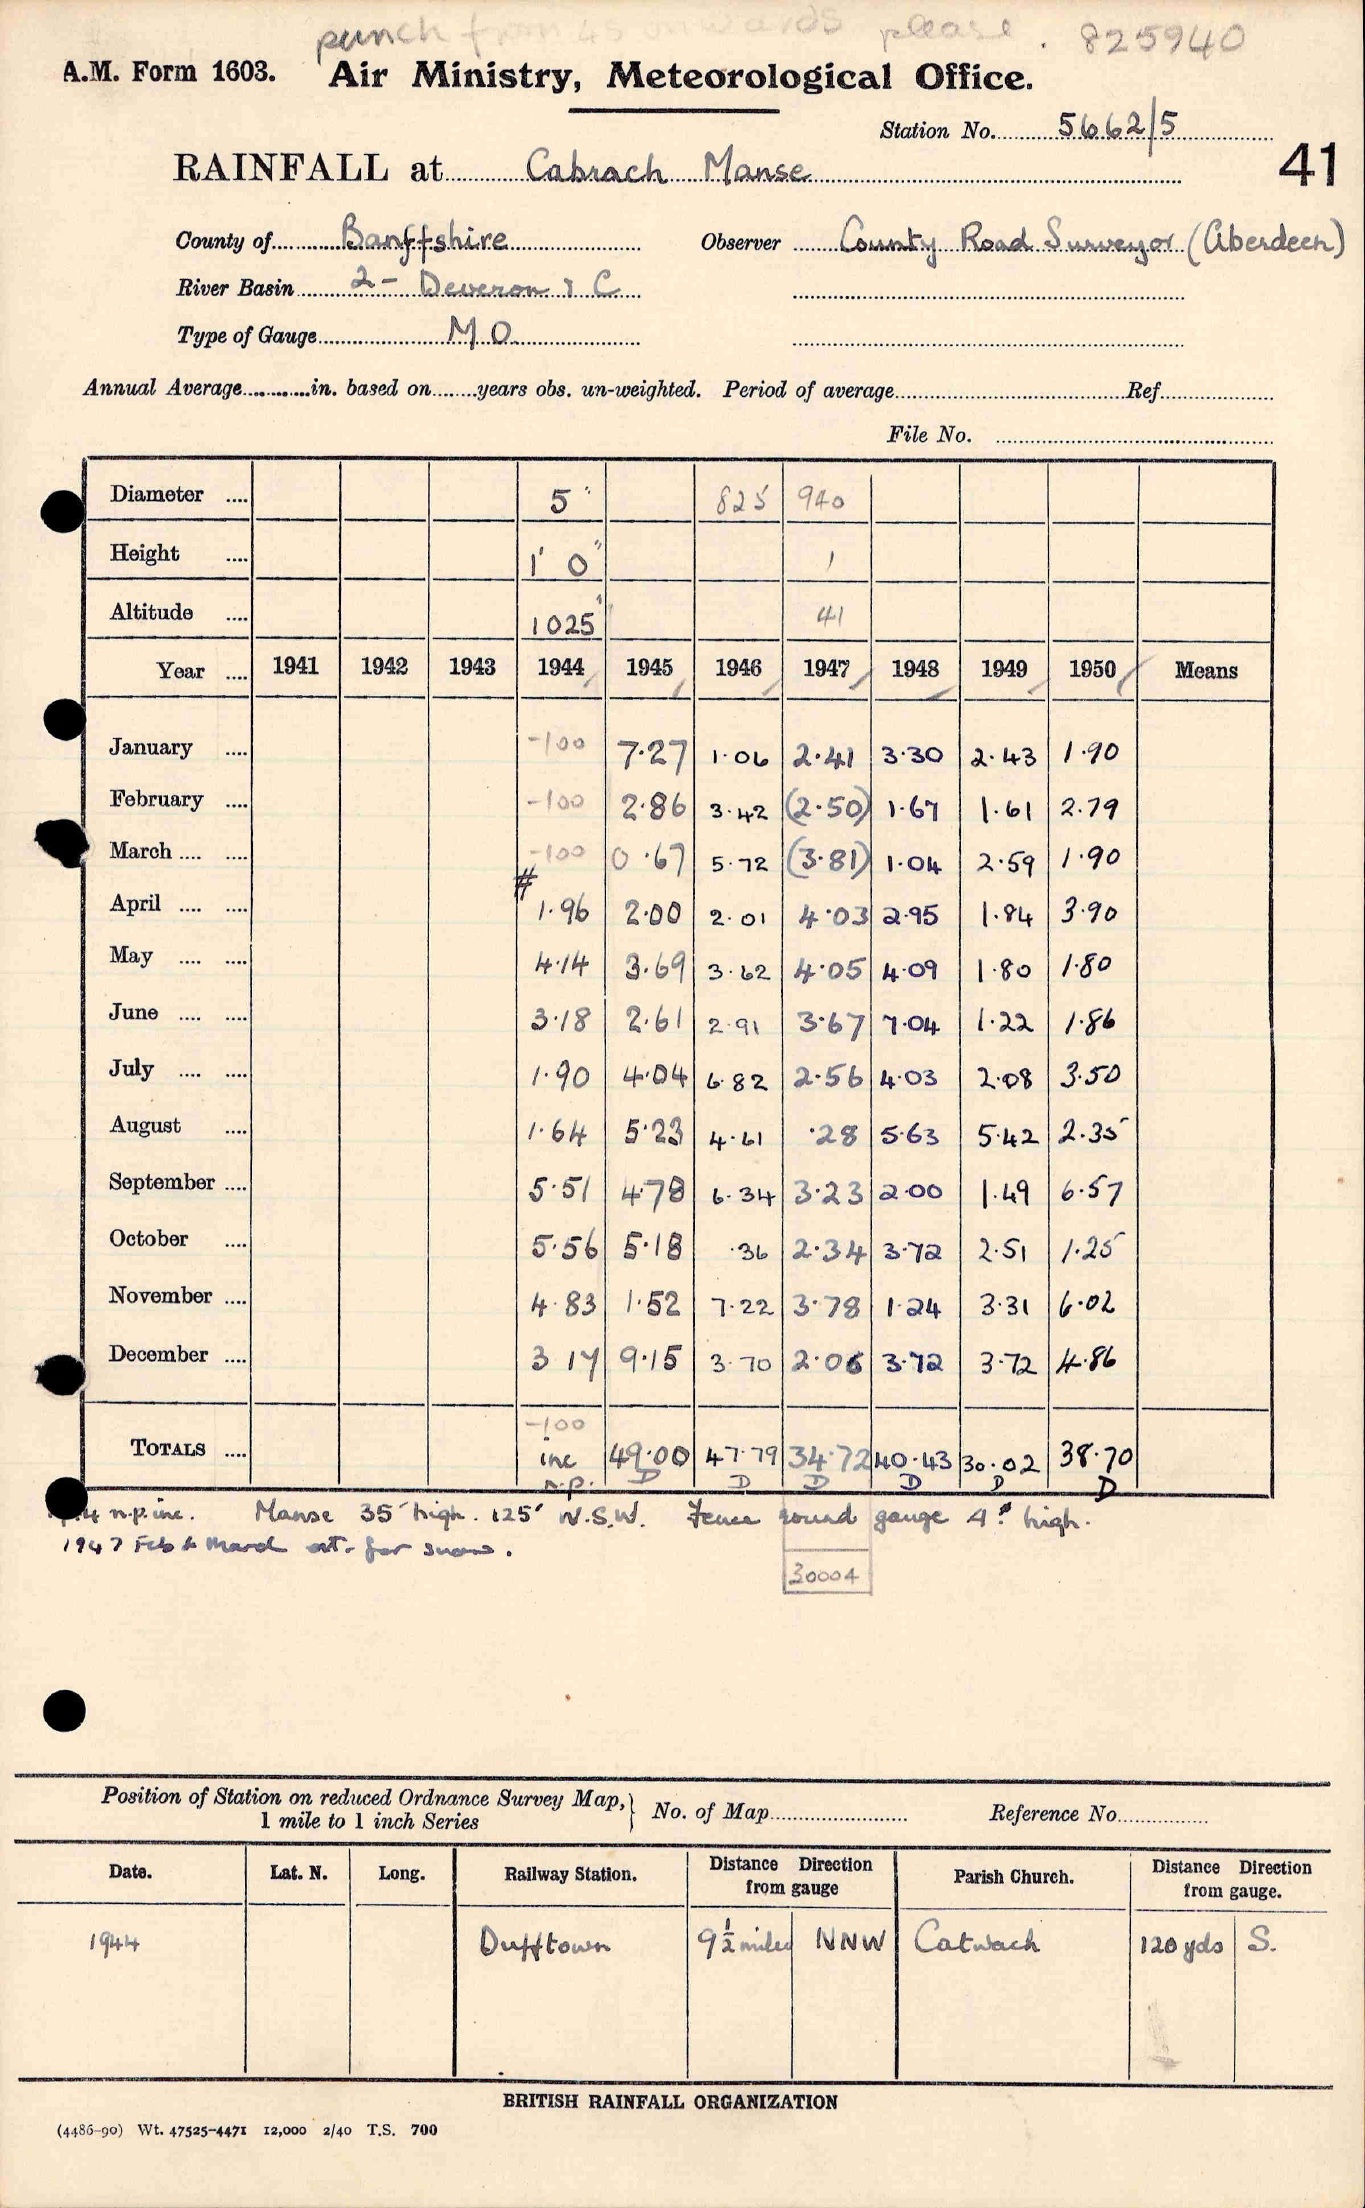 punch from 45 onwards please. 825940
A.M. Form 1603. Air Ministry, Meteorological Office.
Station No. 5662/5
41
RAINFALL at Cabrach Manse
County of Banffshire Observer County Road Surveyor (Aberdeen)
River Basin 2 - Deveron & C
Type of Gauge M O
Annual Average............in. based on........years obs. un-weighted. Period of average.............Ref.............
File No. .............
Diameter .... 5" 825 940
Height .... 1' 0" 1
Altitude .... 1025' 41
Year .... 1941 1942 1943 1944 1945 1946 1947 1948 1949 1950 Means
January .... -100 7.27 1.06 2.41 3.30 2.43 1.90
February .... -100 2.86 3.42 (2.50) 1.67 1.61 2.79
March .... .... -100 0.67 5.72 (3.81) 1.04 2.59 1.90
April .... .... # 1.96 2.00 2.01 4.03 2.95 1.84 3.90
May .... .... 4.14 3.69 3.62 4.05 4.09 1.80 1.80
June .... .... 3.18 2.61 2.91 3.67 7.04 1.22 1.86
July .... .... 1.90 4.04 6.82 2.56 4.03 2.08 3.50
August .... 1.64 5.23 4.61 .28 5.63 5.42 2.35
September .... 5.51 4.78 6.34 3.23 2.00 1.49 6.57
October .... 5.56 5.18 .36 2.34 3.72 2.51 1.25
November .... 4.83 1.52 7.22 3.78 1.24 3.31 6.02
December .... 3 17 9.15 3.70 2.06 3.72 3.72 4.86
-100
TOTALS .... inc 49.00 47.79 34.72 40.43 30.02 38.70
n.p. D D D D D D
n.p. inc. Manse 35' high. 125' W.S.W. Fence round gauge 4' high.
1947 Feb & March est. for snow.
30004
Position of Station on reduced Ordnance Survey Map,
1 mile to 1 inch Series } No. of Map............. Reference No.............
Date. Lat. N. Long. Railway Station. Distance Direction from gauge Parish Church. Distance Direction from gauge.
1944 Dufftown 9½ miles NNW Catwach 120 yds S.
BRITISH RAINFALL ORGANIZATION
(4486-90) Wt. 47525-4471 12,000 2/40 T.S. 700